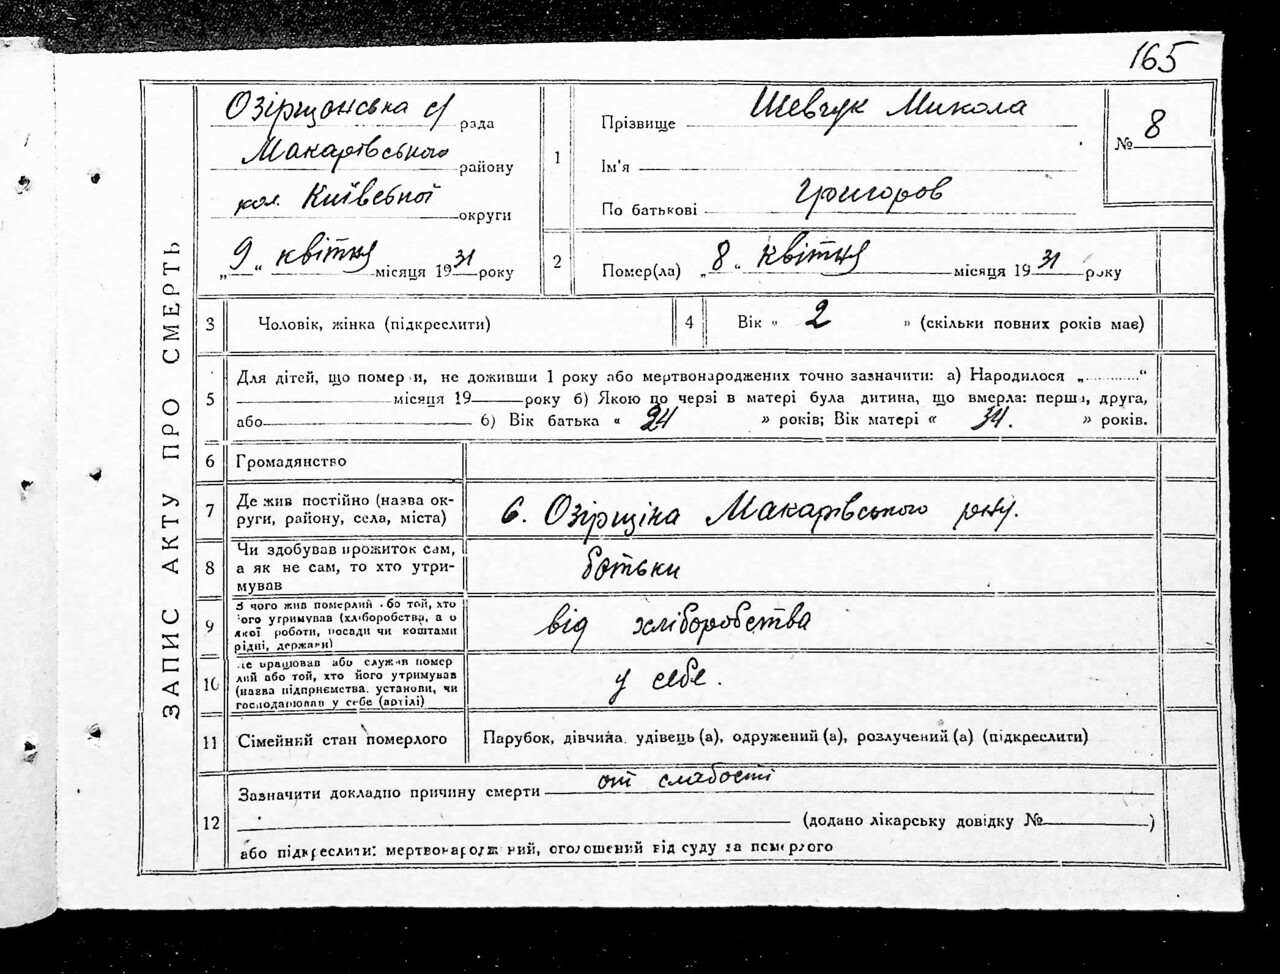 165
ЗАПИС АКТУ ПРО СМЕРТЬ
Озірщанська с/ рада
Макарівського району
кол. Київської округи
„9“ квітня місяця 1931 року
1
Прізвище Шевчук Микола
Ім'я
По батькові Григоров
№ 8
2
Помер(ла) „8“ квітня місяця 1931 року
3 Чоловік, жінка (підкреслити)
4 Вік « 2 » (скільки повних років має)
5
Для дітей, що померли, не доживши 1 року або мертвонароджених точно зазначити: а) Народилося „..........“
місяця 19 року б) Якою по черзі в матері була дитина, що вмерла: перша, друга,
або б) Вік батька « 24 » років; Вік матері « 34. » років.
6 Громадянство
7
Де жив постійно (назва ок-
руги, району, села, міста)
с. Озірщіна Макарівського р-ну.
8
Чи здобував прожиток сам,
а як не сам, то хто утри-
мував
батьки
9
З чого жив померлий або той, хто
його утримував (хліборобства, а о
якої роботи, посади чи коштами
рідні, держави)
від хліборобства
10
Де працював або служив помер
лий або той, хто його утримував
(назва підприємства, установи, чи
господарював у себе (артілі)
у себе.
11 Сімейний стан померлого
Парубок, дівчина, удівець (а), одружений (а), розлучений (а) (підкреслити)
12
Зазначити докладно причину смерти от слабості
(додано лікарську довідку № )
або підкреслити: мертвонароджений, оголошений від суду за померлого